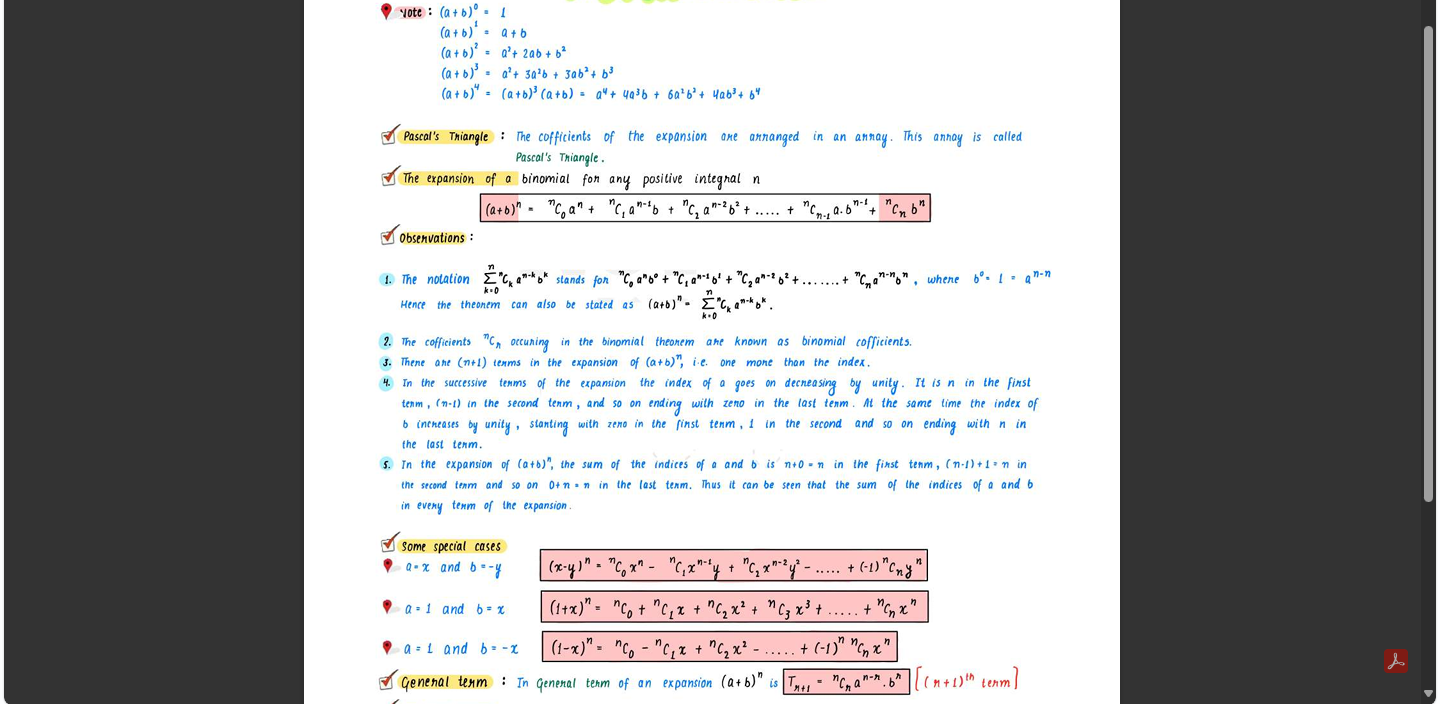 Note : (a+b)⁰ = 1
(a+b)¹ = a+b
(a+b)² = a²+ 2ab + b²
(a+b)³ = a³+ 3a²b + 3ab² + b³
(a+b)⁴ = (a+b)³ (a+b) = a⁴ + 4a³b + 6a²b² + 4ab³ + b⁴
Pascal's Triangle : The cofficients of the expansion are arranged in an array. This array is called
Pascal's Triangle.
The expansion of a binomial for any positive integral n
(a+b)ⁿ = ⁿC₀ aⁿ + ⁿC₁ aⁿ⁻¹b + ⁿC₂ aⁿ⁻²b² + ..... + ⁿCₙ₋₁ a.bⁿ⁻¹ + ⁿCₙ bⁿ
Observations :
1. The notation ∑ₖ₌₀ⁿ ⁿCₖ aⁿ⁻ᵏ bᵏ stands for ⁿC₀ aⁿb⁰ + ⁿC₁ aⁿ⁻¹b¹ + ⁿC₂ aⁿ⁻²b² + ....... + ⁿCₙ aⁿ⁻ⁿbⁿ , where b⁰ = 1 = aⁿ⁻ⁿ
Hence the theorem can also be stated as (a+b)ⁿ = ∑ₖ₌₀ⁿ ⁿCₖ aⁿ⁻ᵏ bᵏ.
2. The cofficients ⁿCᵣ occuring in the binomial theorem are known as binomial cofficients.
3. There are (n+1) terms in the expansion of (a+b)ⁿ, i.e. one more than the index.
4. In the successive terms of the expansion the index of a goes on decreasing by unity. It is n in the first
term, (n-1) in the second term, and so on ending with zero in the last term. At the same time the index of
b increases by unity, starting with zero in the first term, 1 in the second and so on ending with n in
the last term.
5. In the expansion of (a+b)ⁿ, the sum of the indices of a and b is n+0 = n in the first term, (n-1)+1 = n in
the second term and so on 0+n = n in the last term. Thus it can be seen that the sum of the indices of a and b
in every term of the expansion.
Some special cases
a=x and b=-y (x-y)ⁿ = ⁿC₀ xⁿ - ⁿC₁ xⁿ⁻¹y + ⁿC₂ xⁿ⁻²y² - ..... + (-1)ⁿ ⁿCₙ yⁿ
a=1 and b=x (1+x)ⁿ = ⁿC₀ + ⁿC₁ x + ⁿC₂ x² + ⁿC₃ x³ + ..... + ⁿCₙ xⁿ
a=1 and b=-x (1-x)ⁿ = ⁿC₀ - ⁿC₁ x + ⁿC₂ x² - ..... + (-1)ⁿ ⁿCₙ xⁿ
General term : In General term of an expansion (a+b)ⁿ is Tᵣ₊₁ = ⁿCᵣ aⁿ⁻ʳ. bʳ [(r+1)ᵗʰ term]